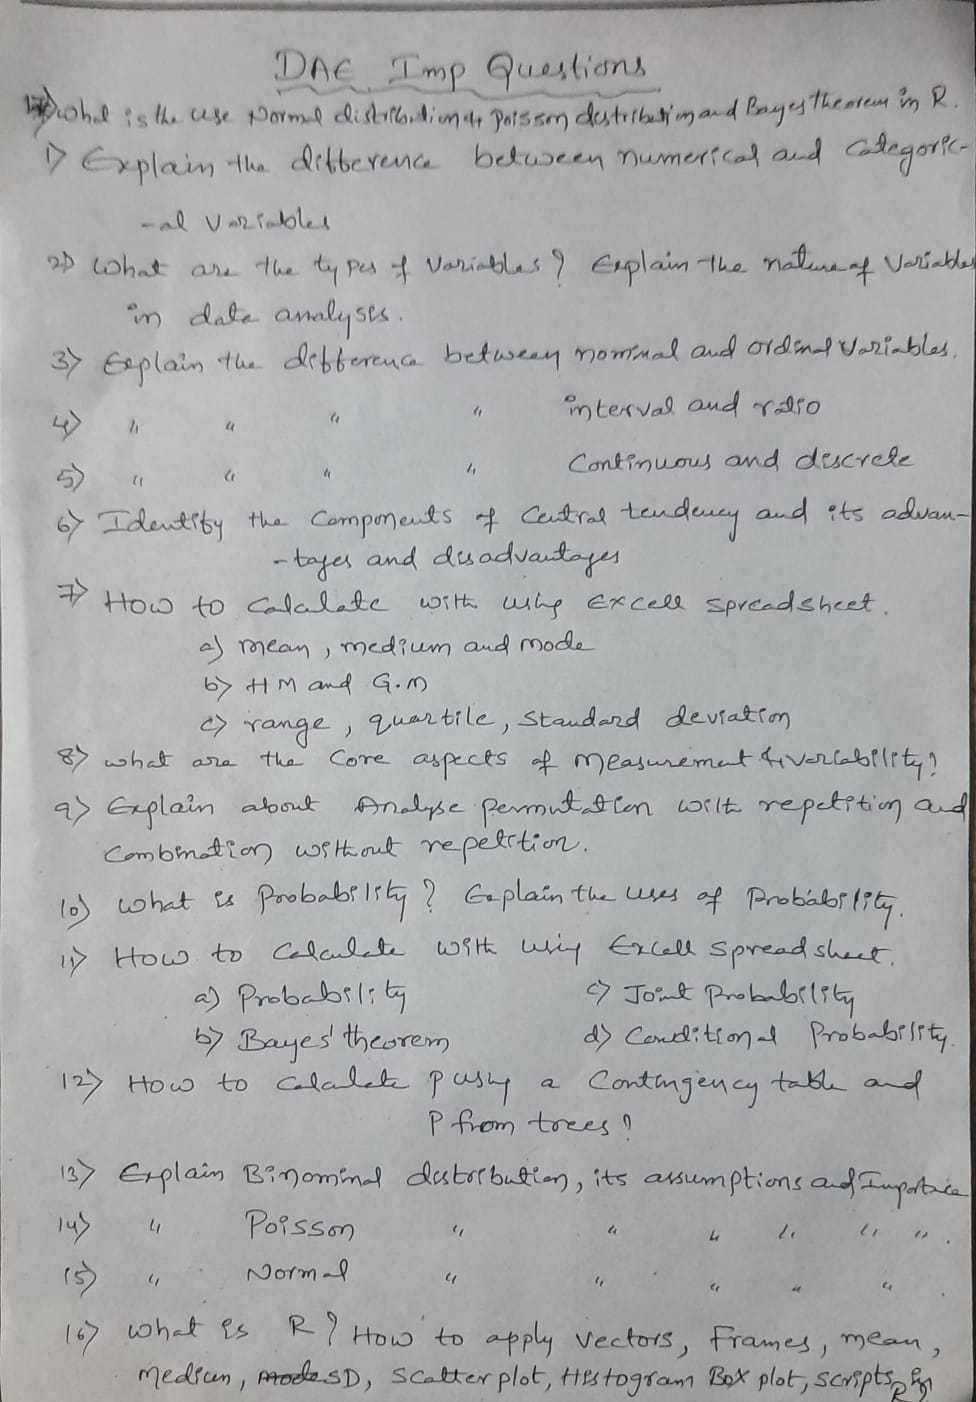 DAE Imp Questions
17) What is the use Normal distribution & poisson distribution and Bayes theorem in R.
1) Explain the difference between numerical and Categoric-
-al Variables
2) What are the types of Variables? Explain the nature of Variables
in data analysis.
3) Explain the difference between nominal and ordinal Variables.
4) " " " " interval and ratio
5) " " " " Continuous and discrete
6) Identify the Components of Central tendency and its advan-
-tages and disadvantages
7) How to Calculate with using Excell spreadsheet.
a) mean, medium and mode
b) HM and G.M
c) range, quartile, Standard deviation
8) what are the Core aspects of measurement & variability?
9) Explain about Analyse permutation with repetition and
Combination without repetition.
10) What is Probability? Explain the uses of Probability.
11) How to Calculate with using Excell Spreadsheet.
a) Probability c) Joint Probability
b) Bayes' theorem d) Conditional Probability.
12) How to Calculate P using a Contingency table and
P from trees?
13) Explain Binominal distribution, its assumptions and Importance
14) " Poisson " " " " " " .
15) " Normal " " " " "
16) What is R? How to apply Vectors, Frames, mean,
Medium, mode SD, Scatter plot, Histogram Box plot, scripts, in
R